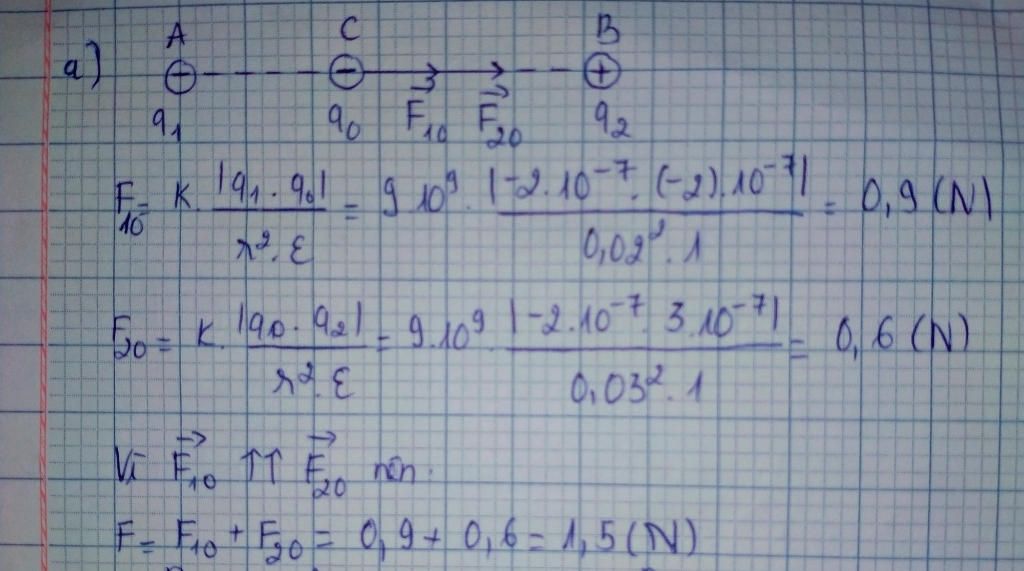 A C B
a) − − +
q₁ q₀ F⃗₁₀ F⃗₂₀ q₂
F₁₀ = K. |q₁.q₀| / r².ε = 9.10⁹. |−2.10⁻⁷.(−2).10⁻⁷| / 0,02².1 = 0,9 (N)
F₂₀ = K. |q₀.q₂| / r².ε = 9.10⁹. |−2.10⁻⁷.3.10⁻⁷| / 0,03².1 = 0,6 (N)
Vì F⃗₁₀ ↑↑ F⃗₂₀ nên:
F = F₁₀ + F₂₀ = 0,9 + 0,6 = 1,5 (N)